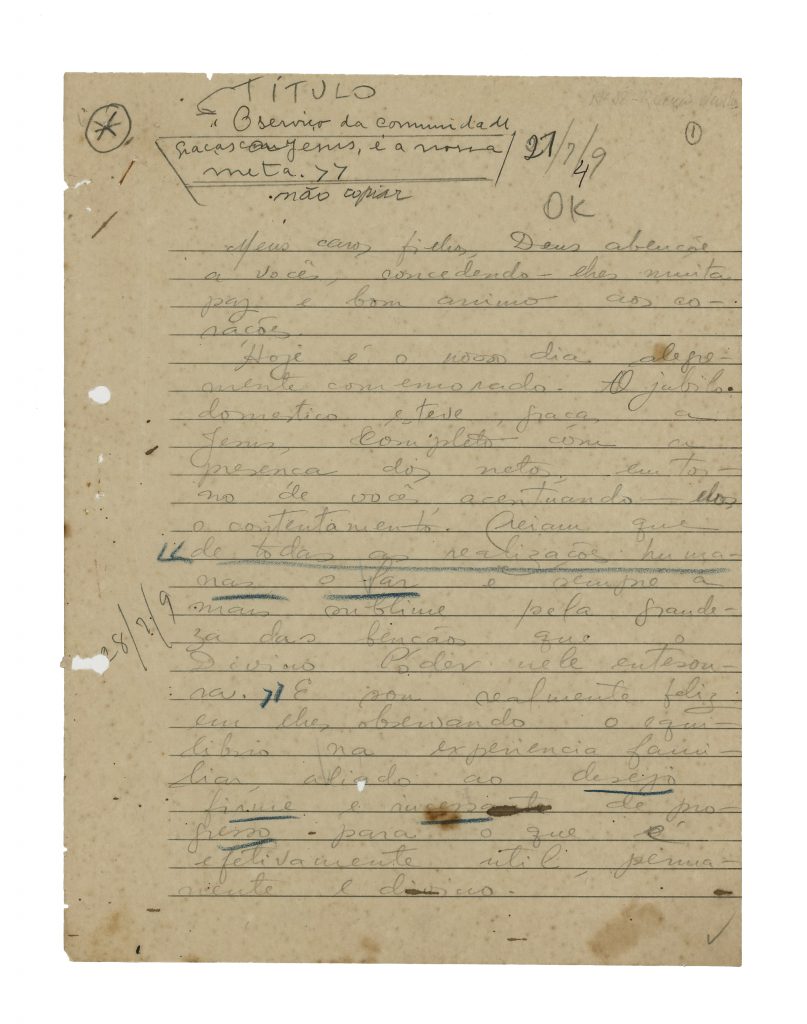 TÍTULO
" O serviço da comunidade
graças a Jesus, é a nossa
meta. "
não copiar
27/7/49
OK
1
Meus caros filhos, Deus abençôe
a vocês, concedendo-lhes muita
paz e bom animo aos co-
rações.
Hoje é o nosso dia alegre-
mente comemorado. O jubilo
domestico esteve, graças a
Jesus, completo com a
presença dos netos, em tor-
no de vocês acentuando-dos
o contentamento. Creiam que
" de todas as realizações huma-
nas o lar é sempre a
mais sublime pela grande-
za das bençãos que o
28/7/9
Divino Poder nele entesou-
ra. " E sou realmente feliz
em lhes observando o equi-
librio na experiencia fami-
liar, aliado ao desejo
firme e incessante de pro-
gresso para o que é
efetivamente util, perma-
nente e divino.